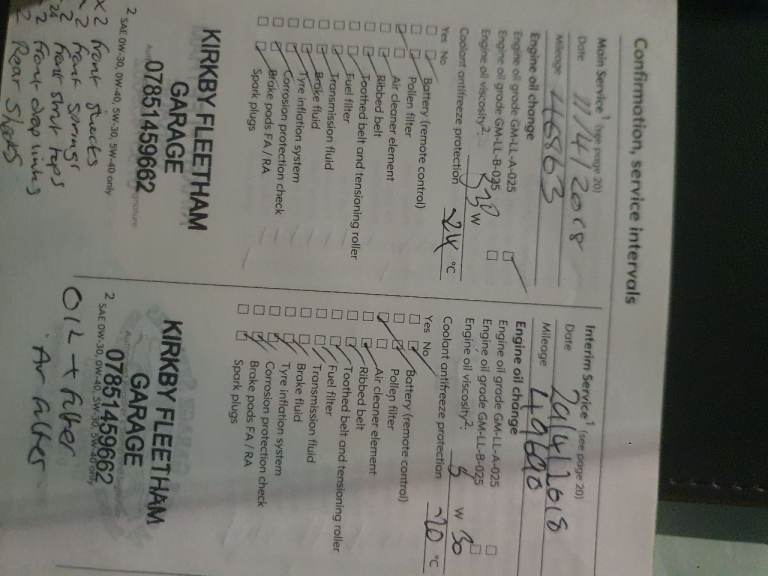 Confirmation, service intervals
Main Service¹ (see page 20)
Date 11/4/2018
Mileage 46863
Engine oil change
Engine oil grade GM-LL-A-025
Engine oil grade GM-LL-B-025
Engine oil viscosity²: W
Coolant antifreeze protection -24 °C
Yes No
Battery (remote control)
Pollen filter
Air cleaner element
Ribbed belt
Toothed belt and tensioning roller
Fuel filter
Transmission fluid
Brake fluid
Tyre inflation system
Corrosion protection check
Brake pads FA / RA
Spark plugs
KIRKBY FLEETHAM
GARAGE
07851459662
2 SAE 0W-30, 0W-40, 5W-30, 5W-40 only
x2 front shocks
x2 front springs
x2 front strut tops
x2 front drop links
2 Rear Shocks
Interim Service¹ (see page 20)
Date
Mileage 49690
Engine oil change
Engine oil grade GM-LL-A-025
Engine oil grade GM-LL-B-025
Engine oil viscosity²: 5 W 30
Coolant antifreeze protection -20 °C
Yes No
Battery (remote control)
Pollen filter
Air cleaner element
Ribbed belt
Toothed belt and tensioning roller
Fuel filter
Transmission fluid
Brake fluid
Tyre inflation system
Corrosion protection check
Brake pads FA / RA
Spark plugs
KIRKBY FLEETHAM
GARAGE
07851459662
2 SAE 0W-30, 0W-40, 5W-30, 5W-40 only
OIL + filter
Air filter